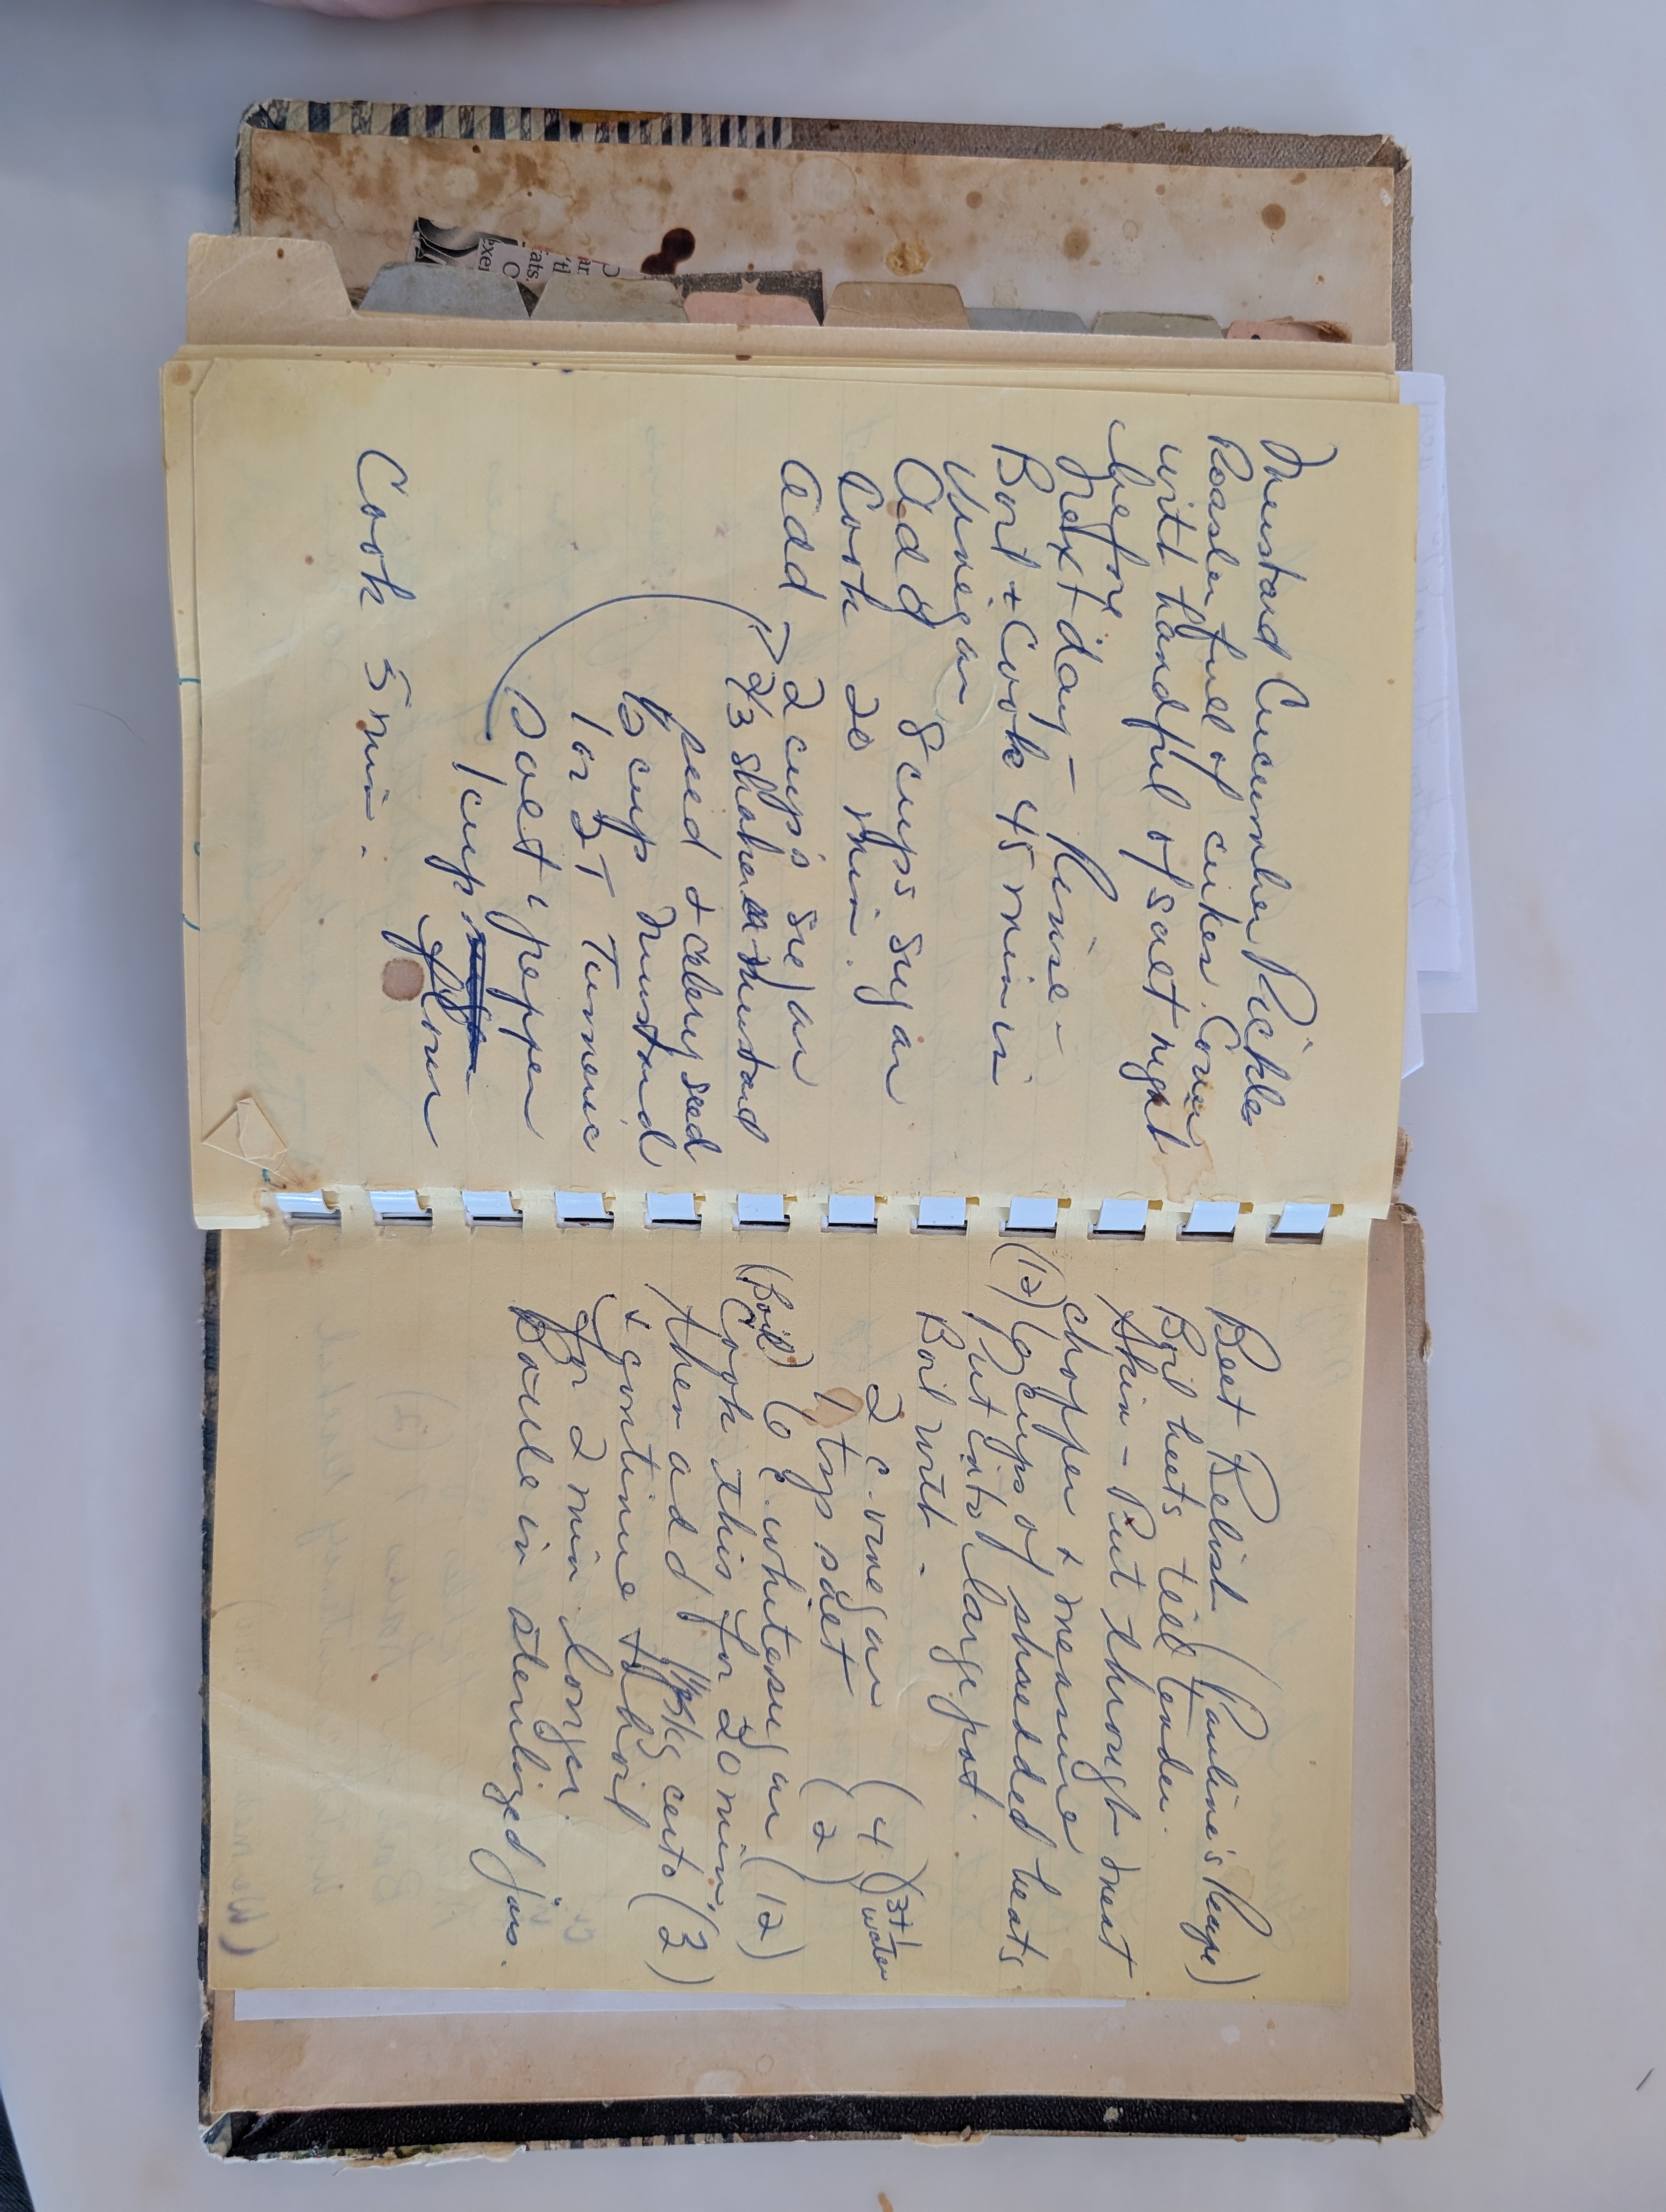 Mustard Cucumber Pickles
Roaster full of cukes. Cover
with handful of salt night
before
Next day - Rinse -
Boil + Cook 45 min in
Vinegar
Add 8 cups sugar
Cook 20 min.
Add 2 cups sugar
2/3 shaker mustard
seed + celery seed
1/2 cup Mustard
1 or 2 T Turmeric
Salt & pepper
1 cup
flour
Cook 5 min.
Beet Relish (Pauline's Recipe)
Boil beets till tender.
Skin - Put through meat
chopper + measure
(12) 6 cups of shredded beats.
Put into large pot.
Boil with -
2 c. vinegar (4) (3+1 water)
1 tsp salt (2)
6 c. white sugar (12)
(Boil) Cook this for 20 min.
then add certo (3)
+ continue to boil
for 2 min longer.
Bottle in sterilized jars.